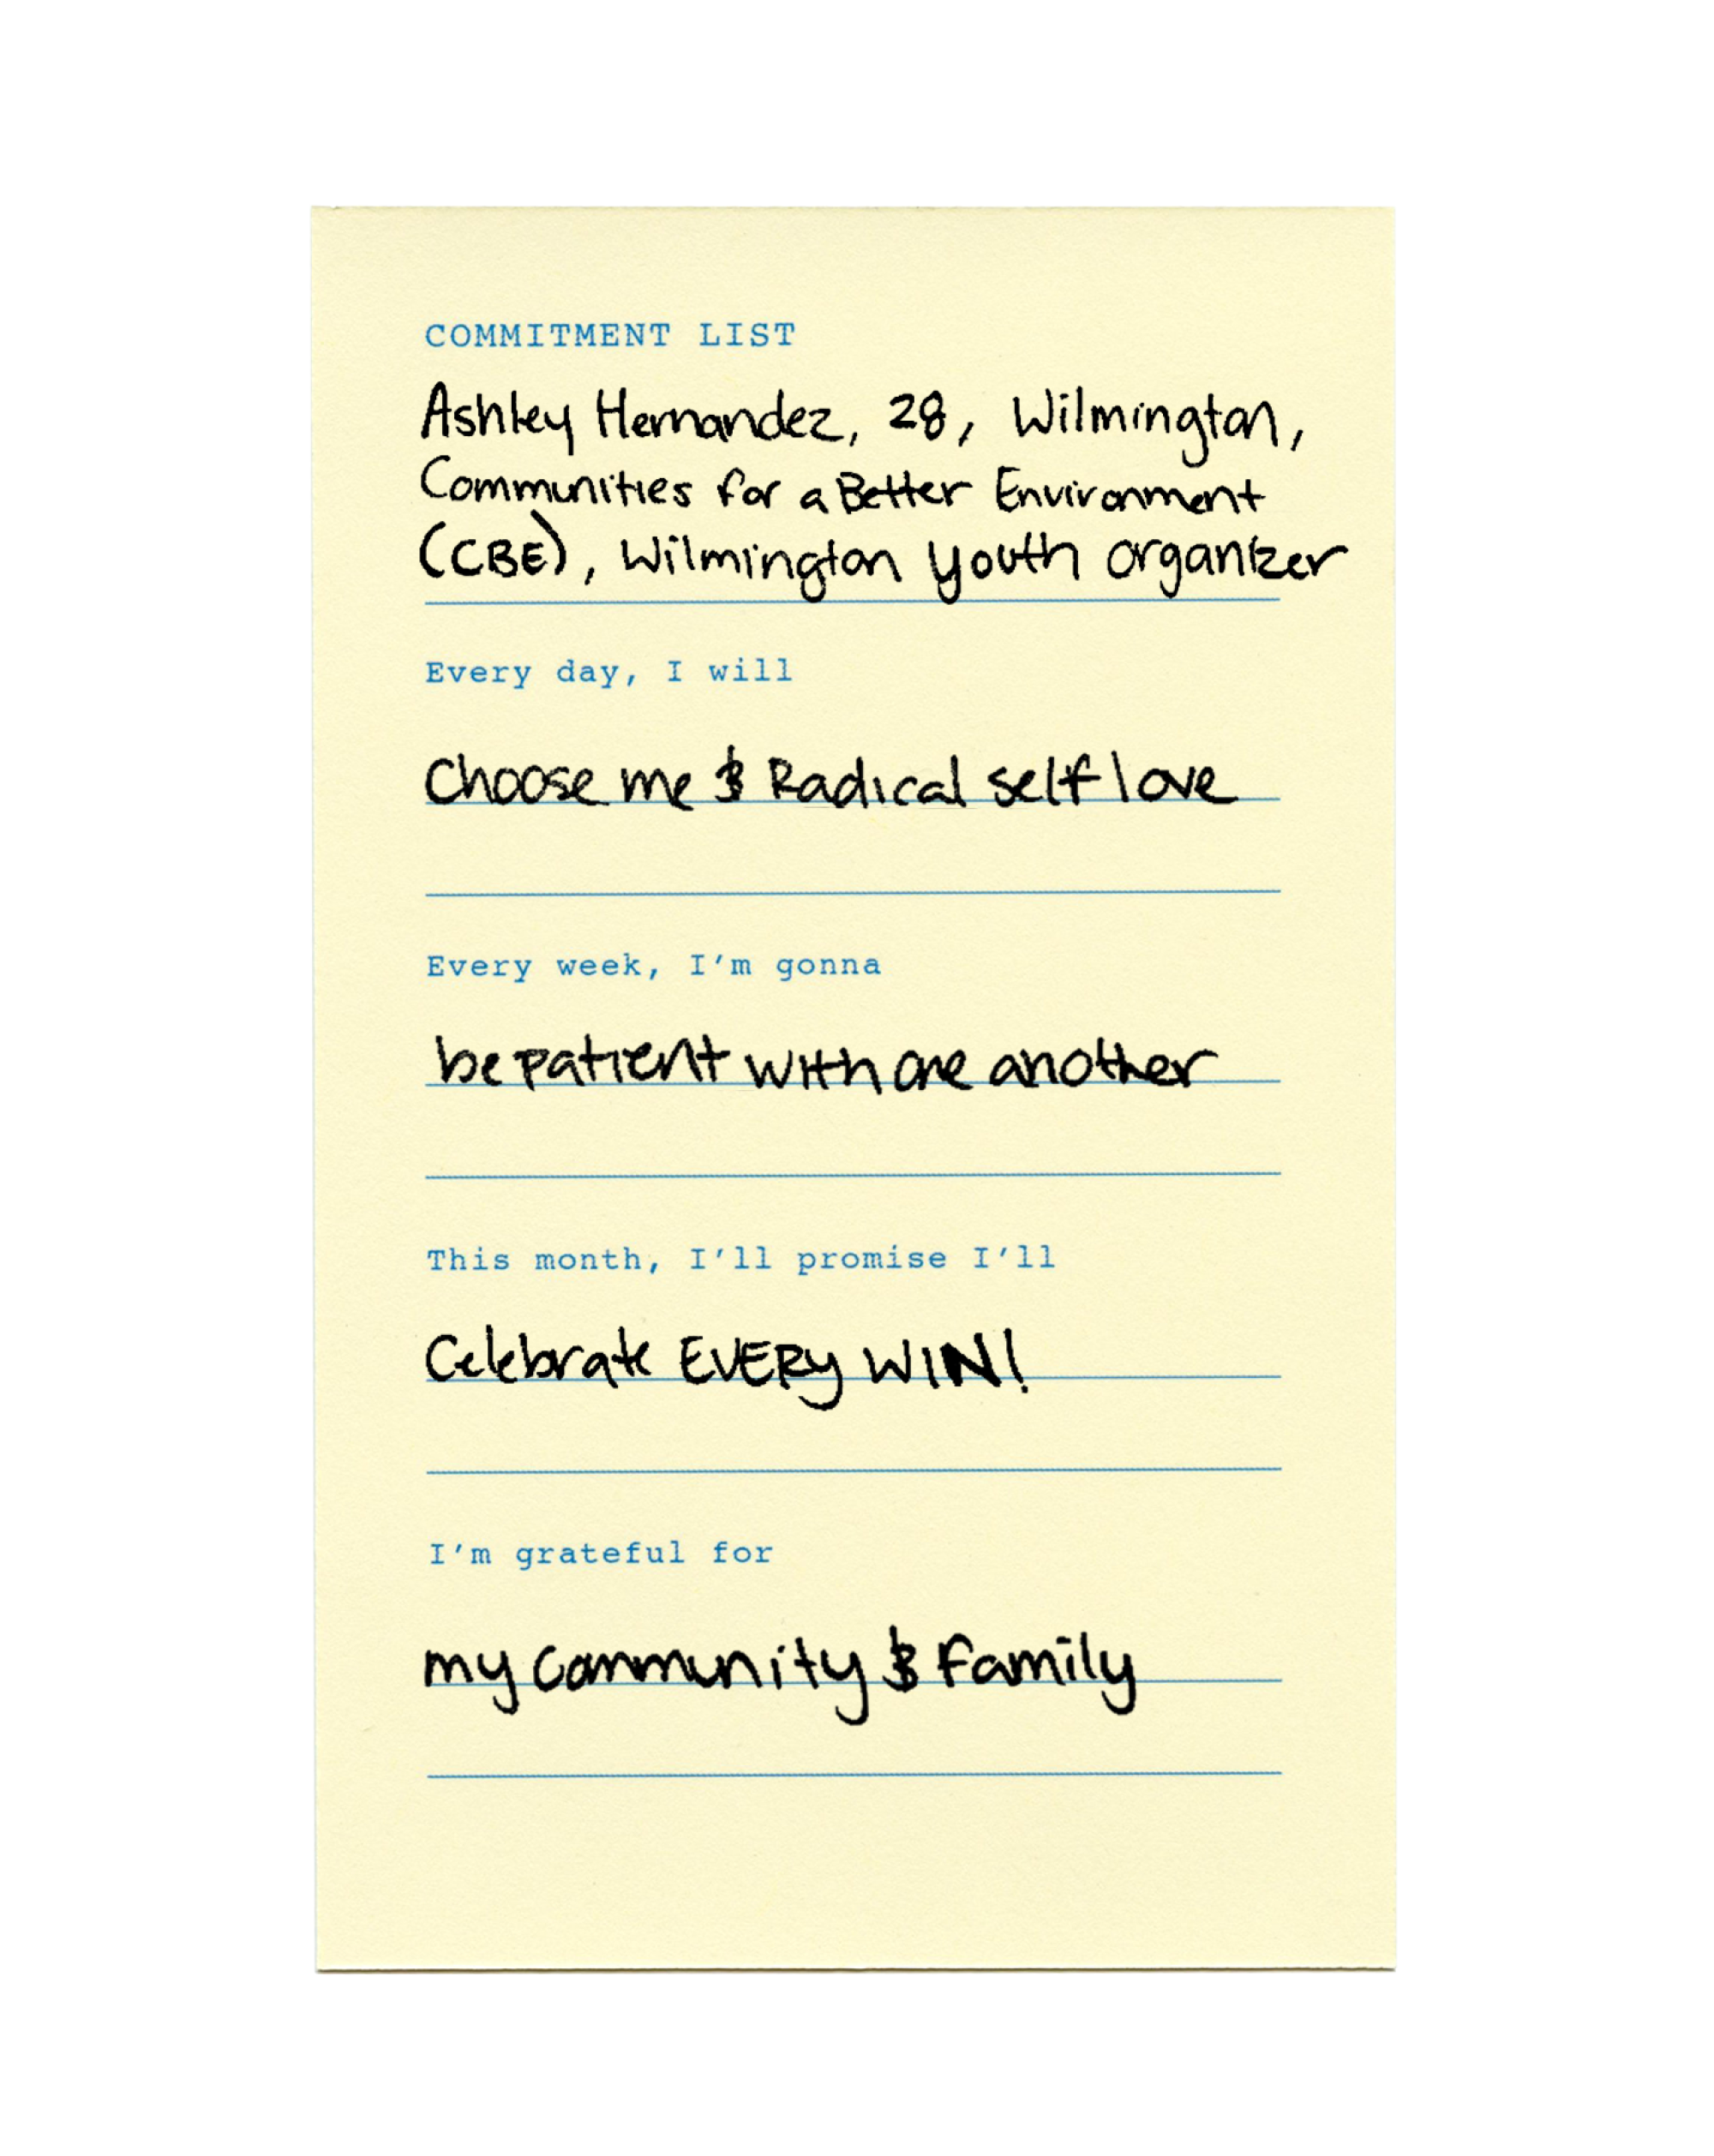 COMMITMENT LIST
Ashley Hernandez, 28, Wilmington,
Communities for a Better Environment
(CBE), Wilmington youth organizer
Every day, I will
Choose me & Radical self love
Every week, I'm gonna
be patient with one another
This month, I'll promise I'll
Celebrate EVERY WIN!
I'm grateful for
my community & family